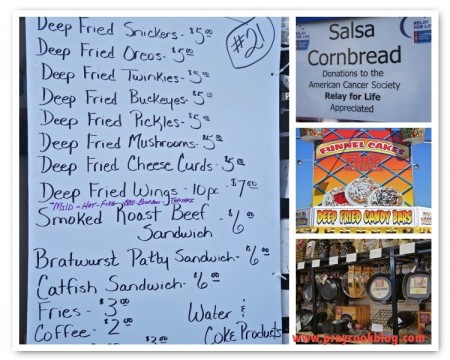 Deep Fried Snickers - $5⁰⁰
Deep Fried Oreos - $5⁰⁰
#2!
Deep Fried Twinkies - $5⁰⁰
Deep Fried Buckeyes - $5⁰⁰
Deep Fried Pickles - $5⁰⁰
Deep Fried Mushrooms - $5⁰⁰
Deep Fried Cheese Curds - $5⁰⁰
Deep Fried Wings - 10pc - $7⁰⁰
*Mild - Hot - Fire - BBQ - Bourbon -
Smoked Roast Beef Sandwich - $6⁰⁰
Bratwurst Patty Sandwich - $6⁰⁰
Catfish Sandwich - $6⁰⁰
Fries - $3⁰⁰
Coffee - $2⁰⁰
Water &
Coke Products
RELAY FOR LIFE
Salsa
Cornbread
Donations to the
American Cancer Society
Relay for Life
Appreciated
FUNNEL CAKES
DEEP FRIED CANDY BARS
www.praycookblog.com